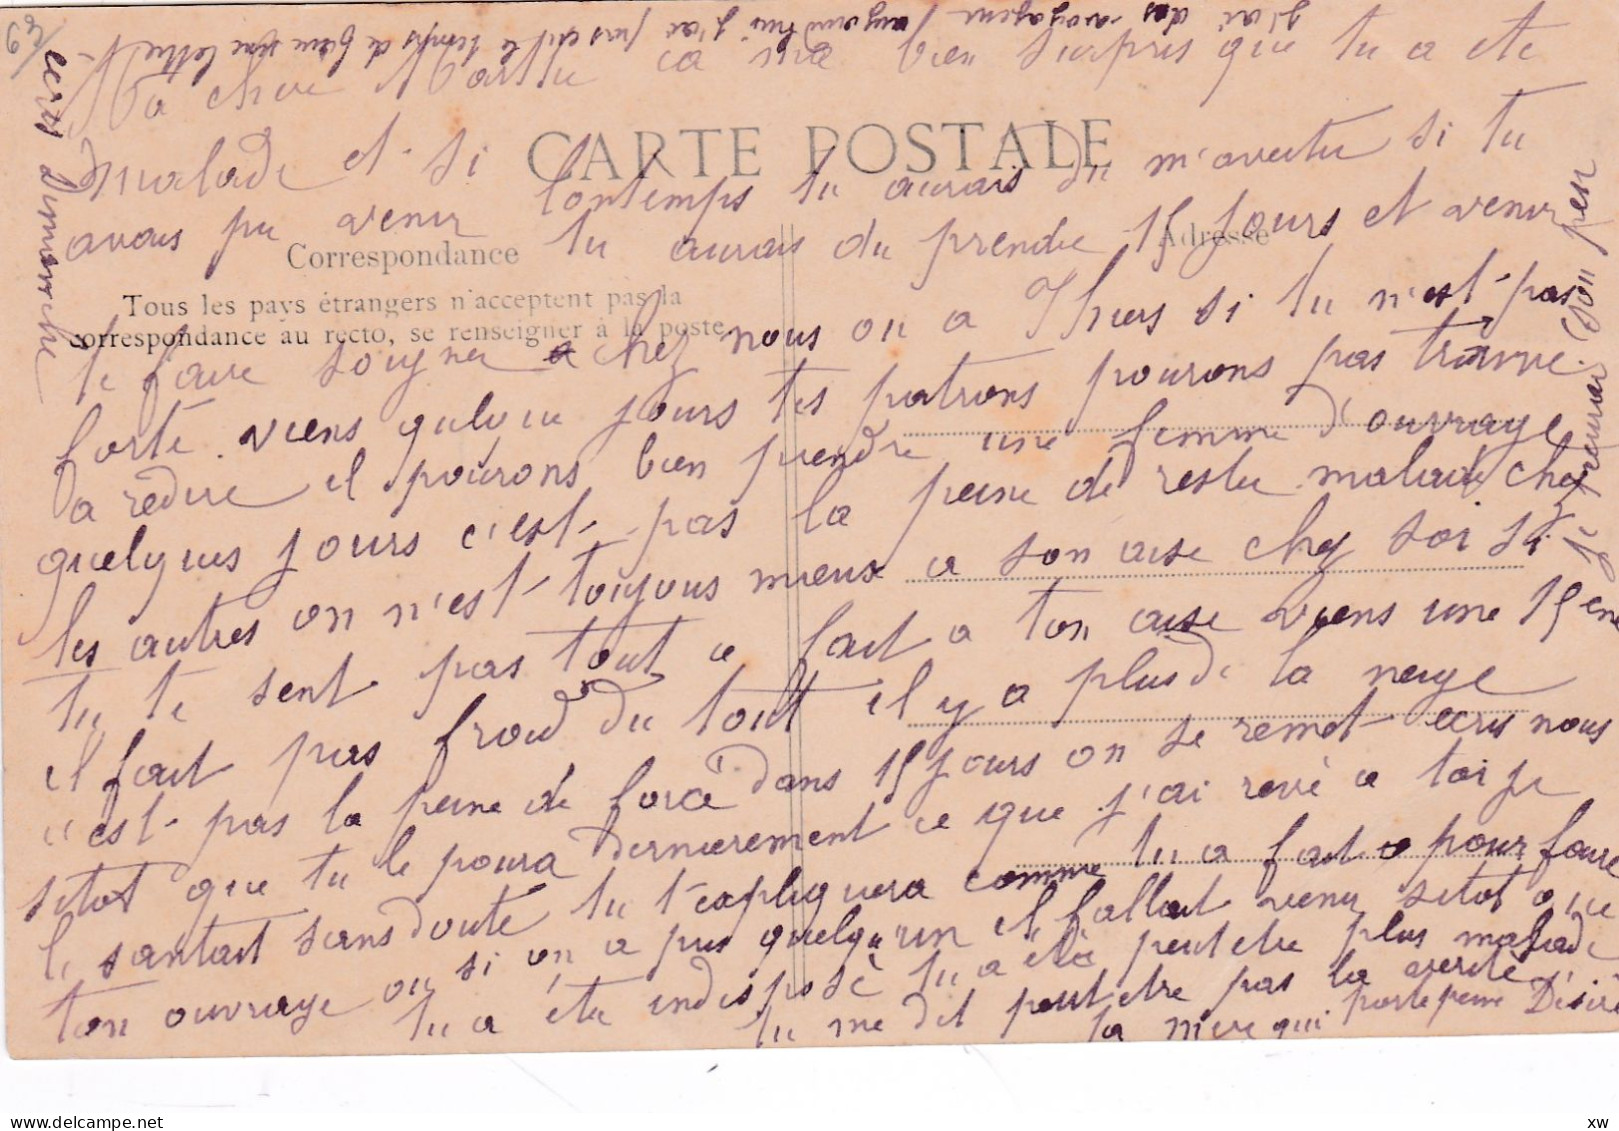 j'ai des voyageurs aujourd'hui j'ai pas eut le temps de faire une lettre
Ma chere Marthe ca ma bien surpris que tu a ete
CARTE POSTALE
malade et si lontemps tu aurais du m'avertir si tu
avais pu venir tu aurais du prendre 15 jours et venir
Correspondance
Adresse
Tous les pays étrangers n'acceptent pas la
correspondance au recto, se renseigner à la poste.
te faire soigner chez nous ou a Thiers si tu n'est pas
forte viens quelque jours tes patrons pourons pas trouve
a redire il pourons bien prendre une femme d'ouvrage
quelques jours c'est pas la peine de reste malade chez
les autres on n'est toujous mieux a son aise chez soi si
tu te sent pas tout a fait a ton aise viens une 15ene
il fait pas froid du tout il y a plus de la neige
c'est pas la peine de force dans 15 jours on se remet ecris nous
sitot que tu le poura dernierement ce que j'ai revé a toi je
le santait sans doute tu t'expliquera comme tu a fait pour faire
ton ouvrage ou si on a pris quelqu'un il fallait venir sitot que
tu a étée indisposé tu a été peut etre plus malade
tu me dit peut etre pas la verité
ta mere qui porte peine Désiré
ecris Dimanche
je treuvais son peu